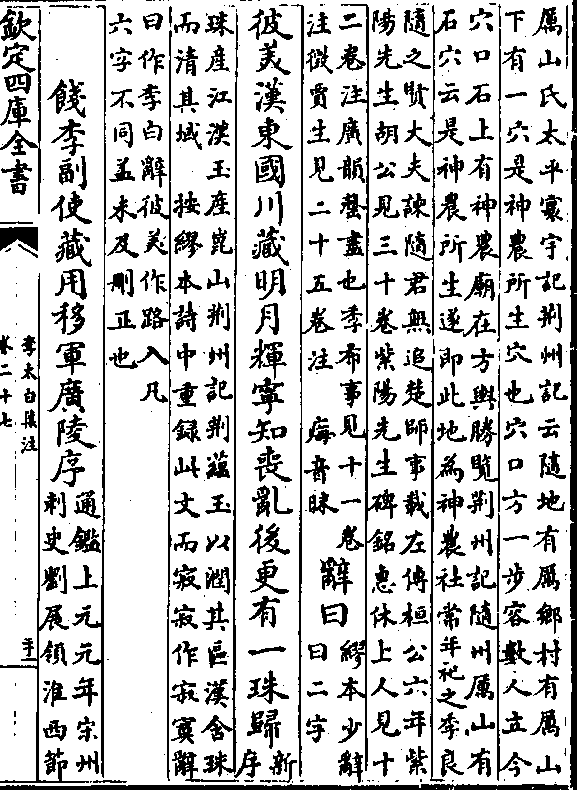 厲山氏太平寰宇記荆州記云隨地有厲鄉村有厲山
下有一穴是神農所生穴也穴口方一步容數人立今
穴口石上有神農廟在方輿勝覽荆州記隨州厲山有
石穴云是神農所生遂即此地為神農社常年祀之季良
隨之賢大夫諫隨君無追楚師事載左傳桓公六年紫
陽先生胡公見三十卷紫陽先生碑銘惠休上人見十
二卷注廣韻螯盡也季布事見十一卷
注微賈生見二十五卷注 痗音昧
辭曰
繆本少辭
曰二字
彼美漢東國川藏明月輝寧知喪亂後更有一珠歸
新
序
珠產江漢玉產崑山荆州記荆蘊玉以潤其區漢含珠
而清其域 按繆本詩中重録此文而寂寂作寂寞辭
曰作李白辭彼美作路入凡
六字不同蓋未及刪正也
餞李副使藏用移軍廣陵序
通鑑上元元年宋州
刺史劉展領淮西節
欽定四庫全書
李太白集注
卷二十七
二十一